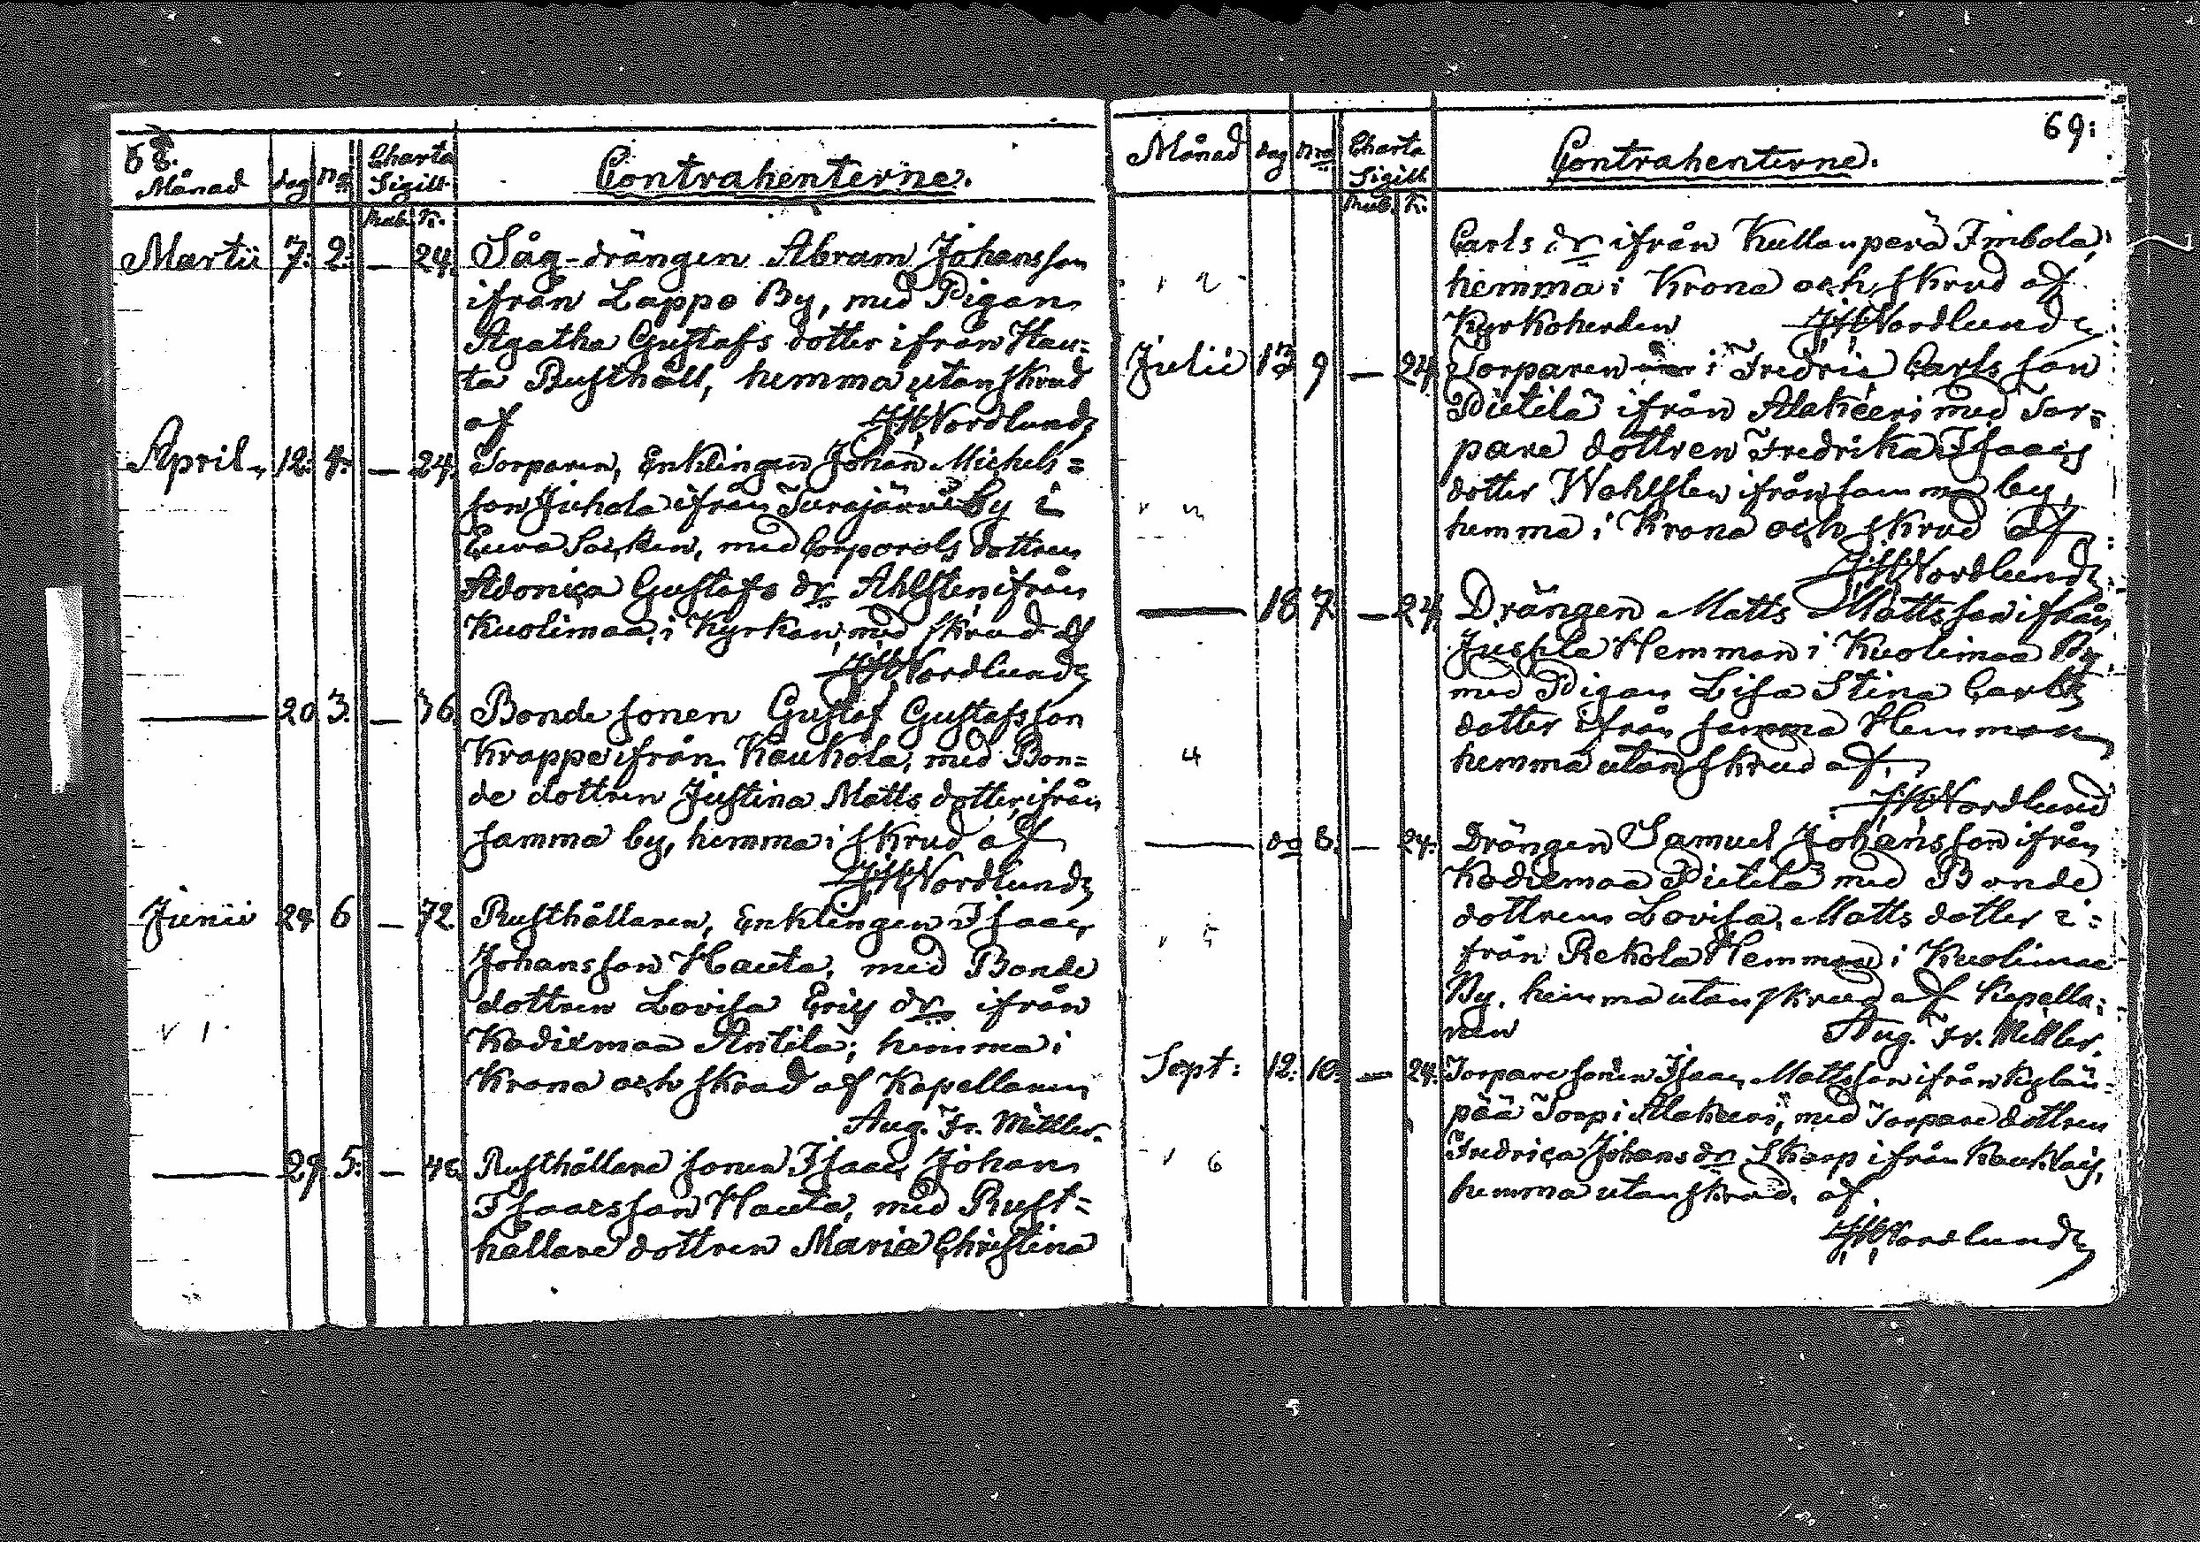 68.
Månad dag No Charta Sigill. Contrahenterne.
Rub. K.
Martii 7. 2. — 24. Såg-drängen Abram Johansson
ifrån Lappo By, med Pigan
Agatha Gustafs dotter ifrån Hau=
ta Rusthåll, hemma utan skrud
af JHNordlund
April 12. 4. — 24. Torparen, Enklingen Johan Michels=
son Juhola ifrån Turajärvi by i
Eura Socken, med Corporols dottren
Adonica Gustafs dr Ahlsten ifrån
Kuolimaa, i Kyrkan, med skrud af
JHNordlund
— 20 3. — 36 Bonde sonen Gustaf Gustafsson
Krappe ifrån Kaukola, med Bon=
de dottren Justina Matts dotter ifrån
samma by, hemma i skrud af
JHNordlund
Junii 24 6 — 72 Rusthållaren, Enklingen Isaac
Johansson Hauta, med Bonde
dottren Lovisa Erics dr ifrån
Kodixmaa Antila; hemma i
v 1
Krona och skrud af Kapellanen
Aug. Fr. Miller.
— 29. 5. — 48 Rusthållare sonen Isaac Johan
Isaacsson Hauta, med Rust=
hållare dottren Maria Christina
69:
Månad dag Nro Charta Sigill. Contrahenterne.
Rub. K.
Carls dr ifrån Kullanperä Imbola,
v 2 hemma i Krona och skrud af
Kyrkoherden JHNordlund
Julii 13 9 — 24 Torparen i Fredric Carlsson
Pietilä ifrån Alakeeri med Tor=
pare dottren Fredrika Isaacs
dotter Wahlsten ifrån samma by,
hemma i Krona och skrud af
JHNordlund
— 18 7. — 24. Drängen Matts Mattsson ifrån
Jussila Hemman i Kuolimaa By
med Pigan Lisa Stina Carls
dotter ifrån samma Hemman
4 hemma utan skrud af,
JHNordlund
— do 8. — 24. Drängen Samuel Johansson ifrån
Kodixmaa Pietilä med Bonde
dottren Lovisa Matts dotter i=
v 5 från Rekola Hemman i Kuolimaa
By, hemma utan skrud af Kapella=
nen Aug. Fr. Miller.
Sept: 12. 10. — 24. Torpare sonen Isaac Mattsson ifrån Kylän=
pää Torp i Alakeeri, med Torpare dottren
v 6 Fredrica Johans dr Skarp ifrån
hemma utan skrud, af.
JHNordlund